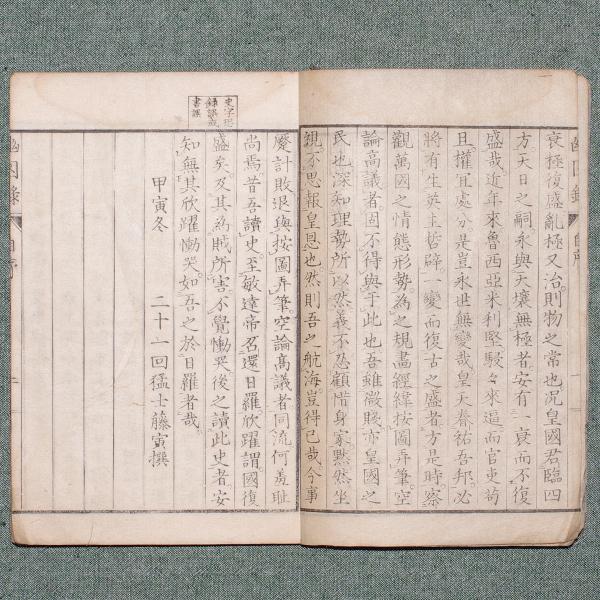 幽囚錄 自序
衰極復盛亂極又治則物之常也況皇國君臨四
方天日之嗣永與天壤無極者安有一衰而不復
盛哉近年來魯西亞米利堅駸々來逼而官吏苟
且權宜處分是豈永世無變哉皇天眷祐吾邦必
將有生英主哲辟一變而復古之盛者方是時察
觀萬國之情態形勢為之規畫經緯按圖弄筆空
論高議者固不得與于此也吾雖微賤亦皇國之
民也深知理勢所以然義不忍顧惜身家默然坐
視不思報皇恩也然則吾之航海豈得已哉今事
蹙計敗退與按圖弄筆空論高議者同流何羞耻
尚焉昔吾讀史至敏達帝召還日羅欣躍謂國復
盛矣及其為賊所害不覺慟哭後之讀此史者安
知無其欣躍慟哭如吾之於日羅者哉
史字恐
書誤
甲寅冬 二十一回猛士藤寅撰
幽囚錄 自序